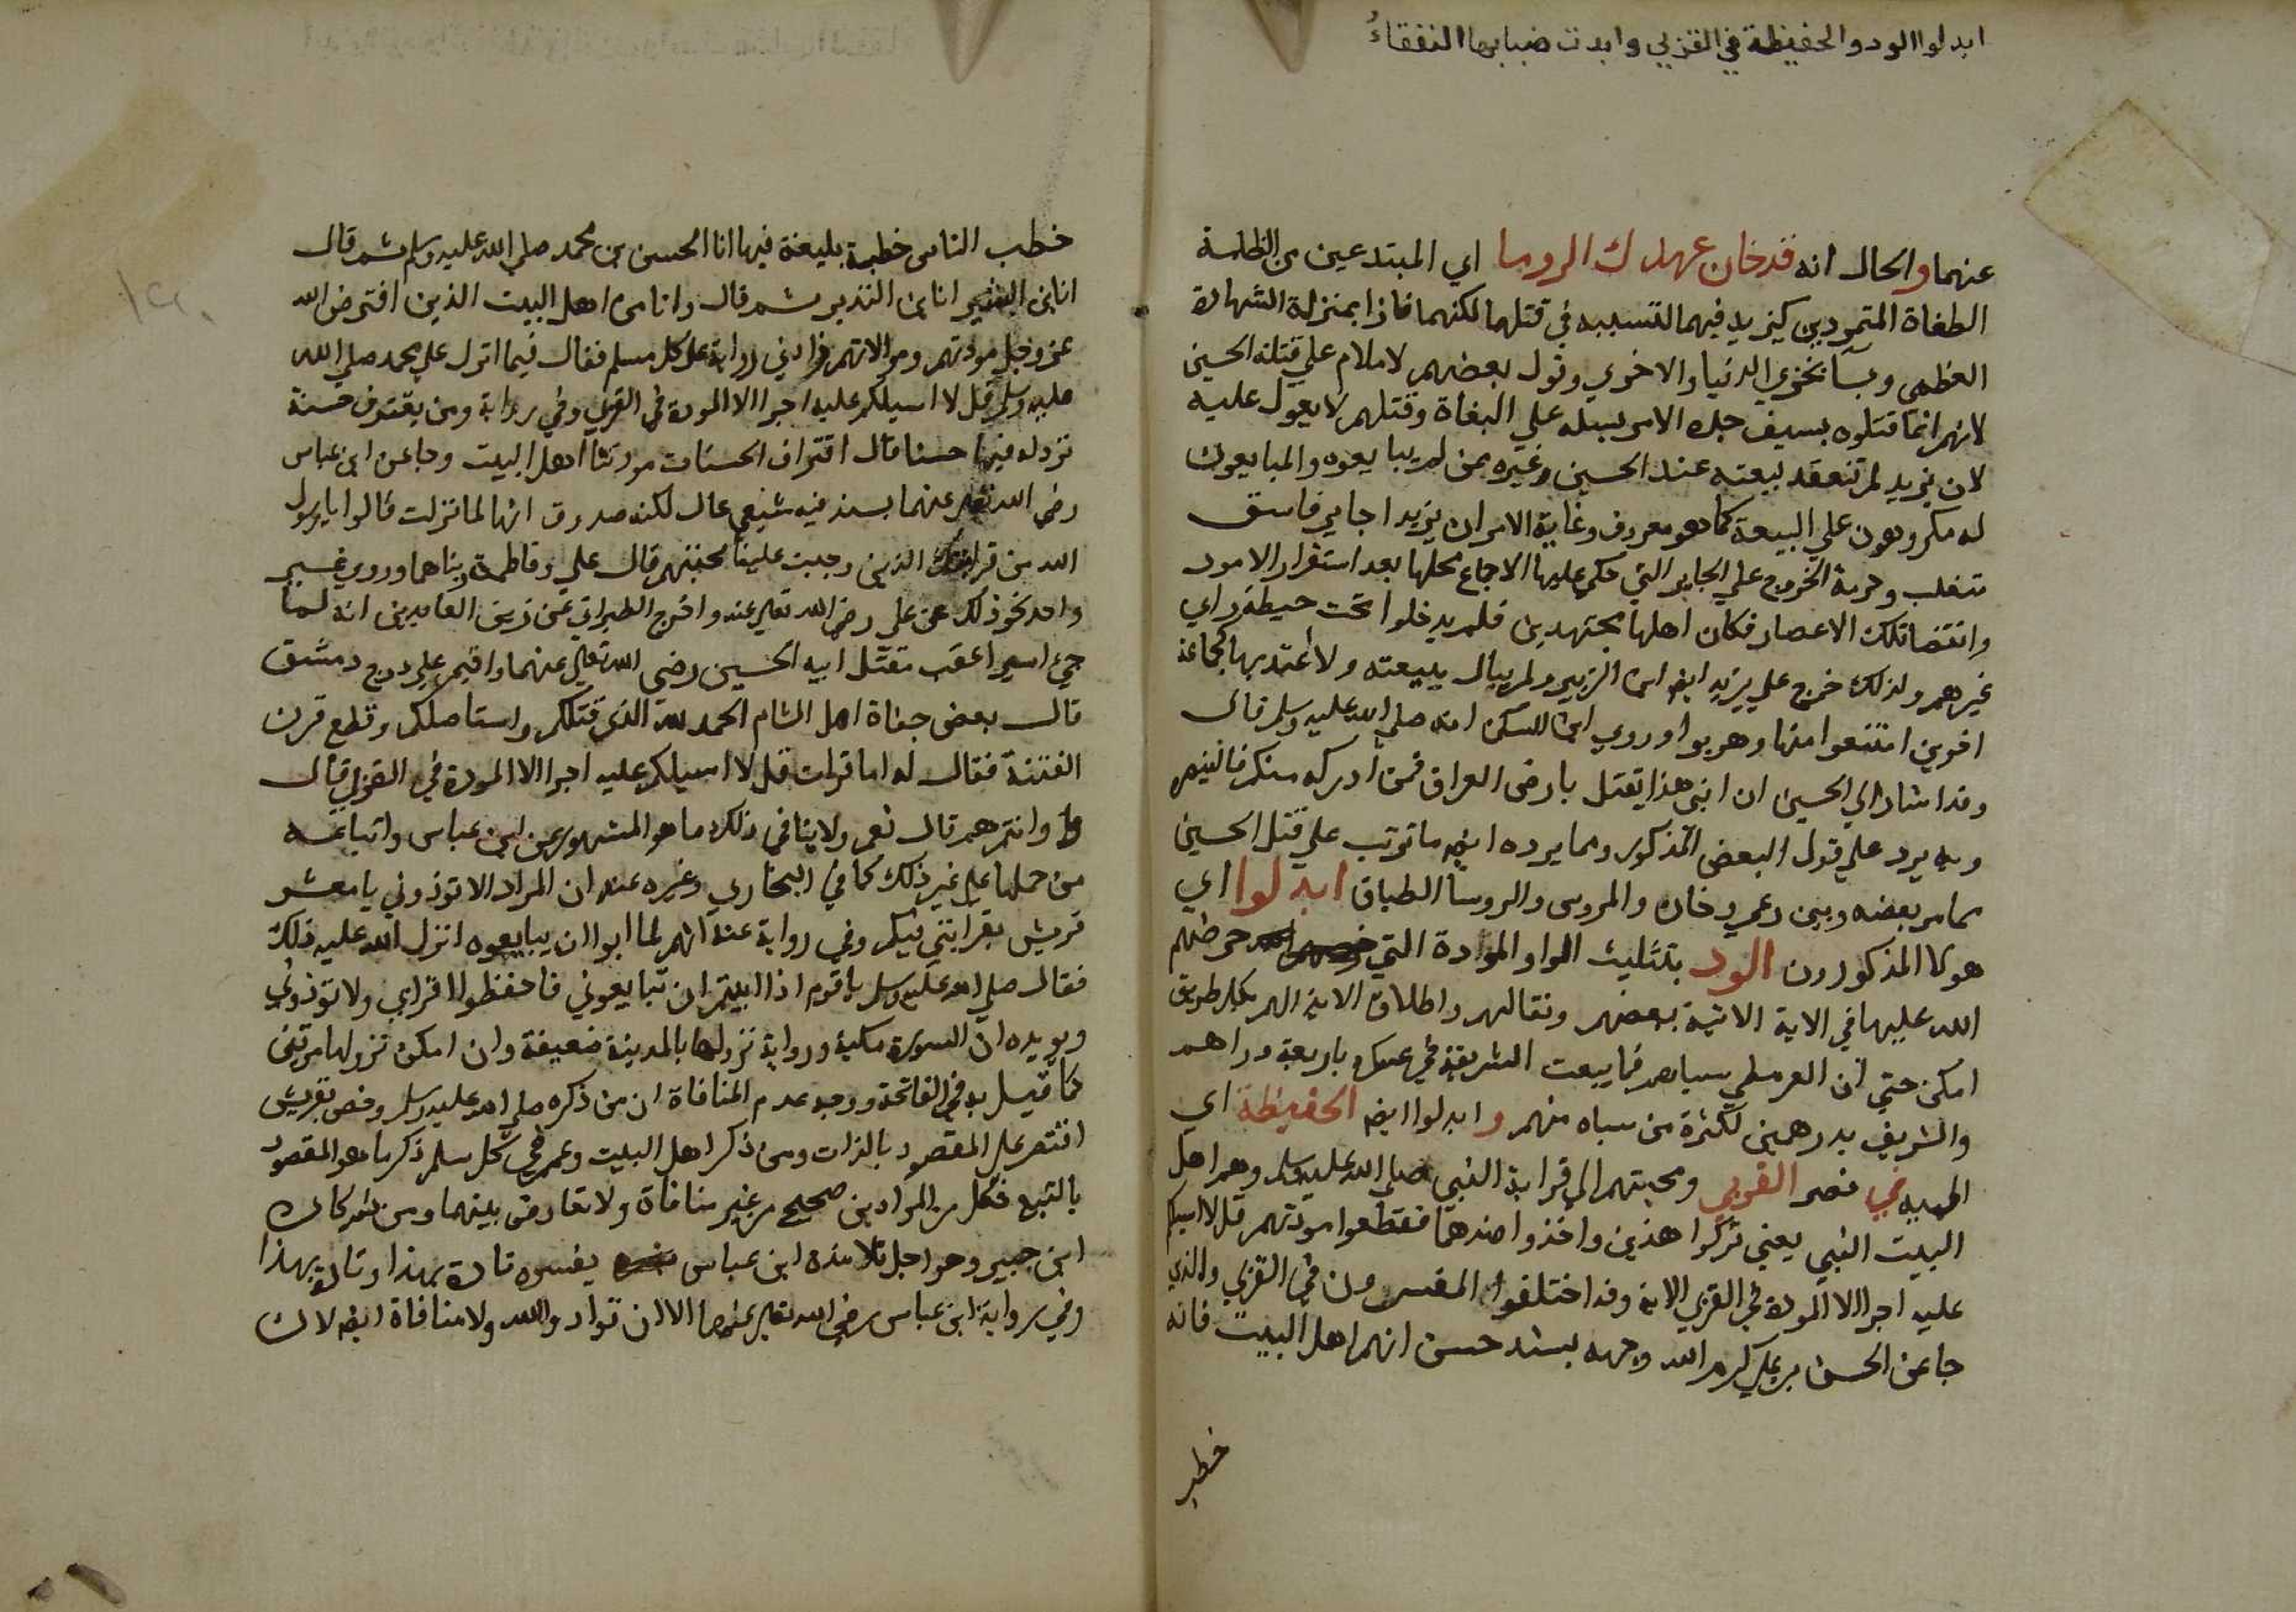 ابدلوا الود والحفيظة في القربي وابدت ضبابها النفقاء
عنهما والحال انه قد خان عهدك الروسا اي المبتدعين من الظلمة
الطغاة المتمردين كيزيد فيهما لتسببه في قتلهما لكنهما فازا بمنزلة الشهادة
العظمي وبآ بخزي الدنيا والاخري وقول بعضهم لا ملام علي قتلة الحسين
لانهم انما قتلوه بسيف جده الامر بسله علي البغاة وقتلهم لا يعول عليه
لان يزيد لم تنعقد بيعته عند الحسين وغيره ممن لم يبايعوه والمبايعون
له مكروهون علي البيعة كما هو معروف وغاية الامر ان يزيد اجاير فاسق
متغلب وحرمة الخروج علي الجاير التي حكي عليها الاجماع محلها بعد استقرار الامور
وانقضا تلك الاعصار فكان اهلها مجتهدين فلم يدخلوا تحت حيطة راي
غيرهم ولذلك خرج علي يزيد ايضا ابن الزبير ولم يبال ببيعته ولا اعتد بها جماعة
اخرين امتنعوا منها وهربوا وروي ابن السكن انه صلي الله عليه وسلم قال
وقد اشار الي الحسين ان ابني هذا يقتل بارض العراق فمن ادركه منكم فلينصره
وبه يرد علي قول البعض المذكور ومما يرده ايضا ما ترتب علي قتل الحسين
مما مر بعضه وبين رعي وخان والمروس والروسا الطباق ابدلوا اي
هولا المذكورون الود بتثليث الواو الموادة التي حرضهم
الله عليها في الاية الاتية ببعضهم وقتالهم واطلاق الاذية اليهم بكل طريق
امكن حتي ان العرملي سباهم فابيعت الشريفة في عسكره باربعة دراهم
والشريف بدرهمين لكثرة من سباه منهم وابدلوا ايضا الحفيظة اي
الحمية في نصر القربي ومحبتهم الي قرابة النبي صلي الله عليه وسلم وهم اهل
البيت النبي يعني تركوا هذين واخذوا ضدهما فقطعوا مودتهم قل لا اسيلكم
عليه اجرا الا المودة في القربي الاية وقد اختلفوا المفسرون في القربي والذي
جا عن الحسن بن علي كرم الله وجهه بسند حسن انهم اهل البيت فانه
خطب
خطب الناس خطبة بليغة فيها انا الحسن بن محمد صلي الله عليه وسلم ثم قال
انا ابن البشير انا ابن النذير ثم قال وانا من اهل البيت الذين افترض الله
عز وجل مودتهم وموالاتهم زاد في رواية علي كل مسلم فقال فيما انزل علي محمد صلي الله
عليه وسلم قل لا اسيلكم عليه اجرا الا المودة في القربي وفي رواية ومن يقترف حسنة
نزد له فيها حسنا قال اقتراف الحسنات مودتنا اهل البيت وجا عن ابن عباس
رضي الله تعالي عنهما بسند فيه شيعي غال لكنه صدوق انها لما نزلت قالوا يا رسول
الله من قرابتك الذين وجبت علينا محبتهم قال علي وفاطمة وابناهما وروي غير
واحد نحو ذلك عن علي رضي الله تعالي عنه واخرج الطبراني عن زين العابدين انه لما
جيء اسيرا عقب مقتل ابيه الحسين رضي الله تعالي عنهما واقيم علي درج دمشق
قال بعض جفاة اهل الشام الحمد لله الذي قتلكم واستاصلكم وقطع قرن
الفتنة فقال له اما قرات قل لا اسيلكم عليه اجرا الا المودة في القربي قال
وانتم هم قال نعم ولا ينافي ذلك ما هو المشهور عن ابن عباس واتباعه
من حملها علي غير ذلك كما في البخاري وغيره عنه ان المراد الا توذوني يا معشر
قريش بقرابتي فيكم وفي رواية عنه انهم لما ابوا ان يبايعوه انزل الله عليه ذلك
فقال صلي الله عليه وسلم يا قوم اذا ابيتم ان تبايعوني فاحفظوا قرابتي ولا توذوني
ويويده ان السورة مكية ورواية نزولها بالمدينة ضعيفة وان امكن نزولها مرتين
كما قيل به في الفاتحة ووجه عدم المنافاة ان من ذكره صلي الله عليه وسلم وخص بقريش
اقتصر علي المقصود بالذات ومن ذكر اهل البيت وعمم في كل مسلم ذكر ما هو المقصود
بالتبع فكل من المرادين صحيح من غير منافاة ولا تعارض بينهما ومن ثم كان
ابن جبير وهو اجل تلامذة ابن عباس يفسره تارة بهذا وتارة بهذا
وفي رواية ابن عباس رضي الله تعالي عنهما الا ان توادوا الله ولا منافاة ايضا لان